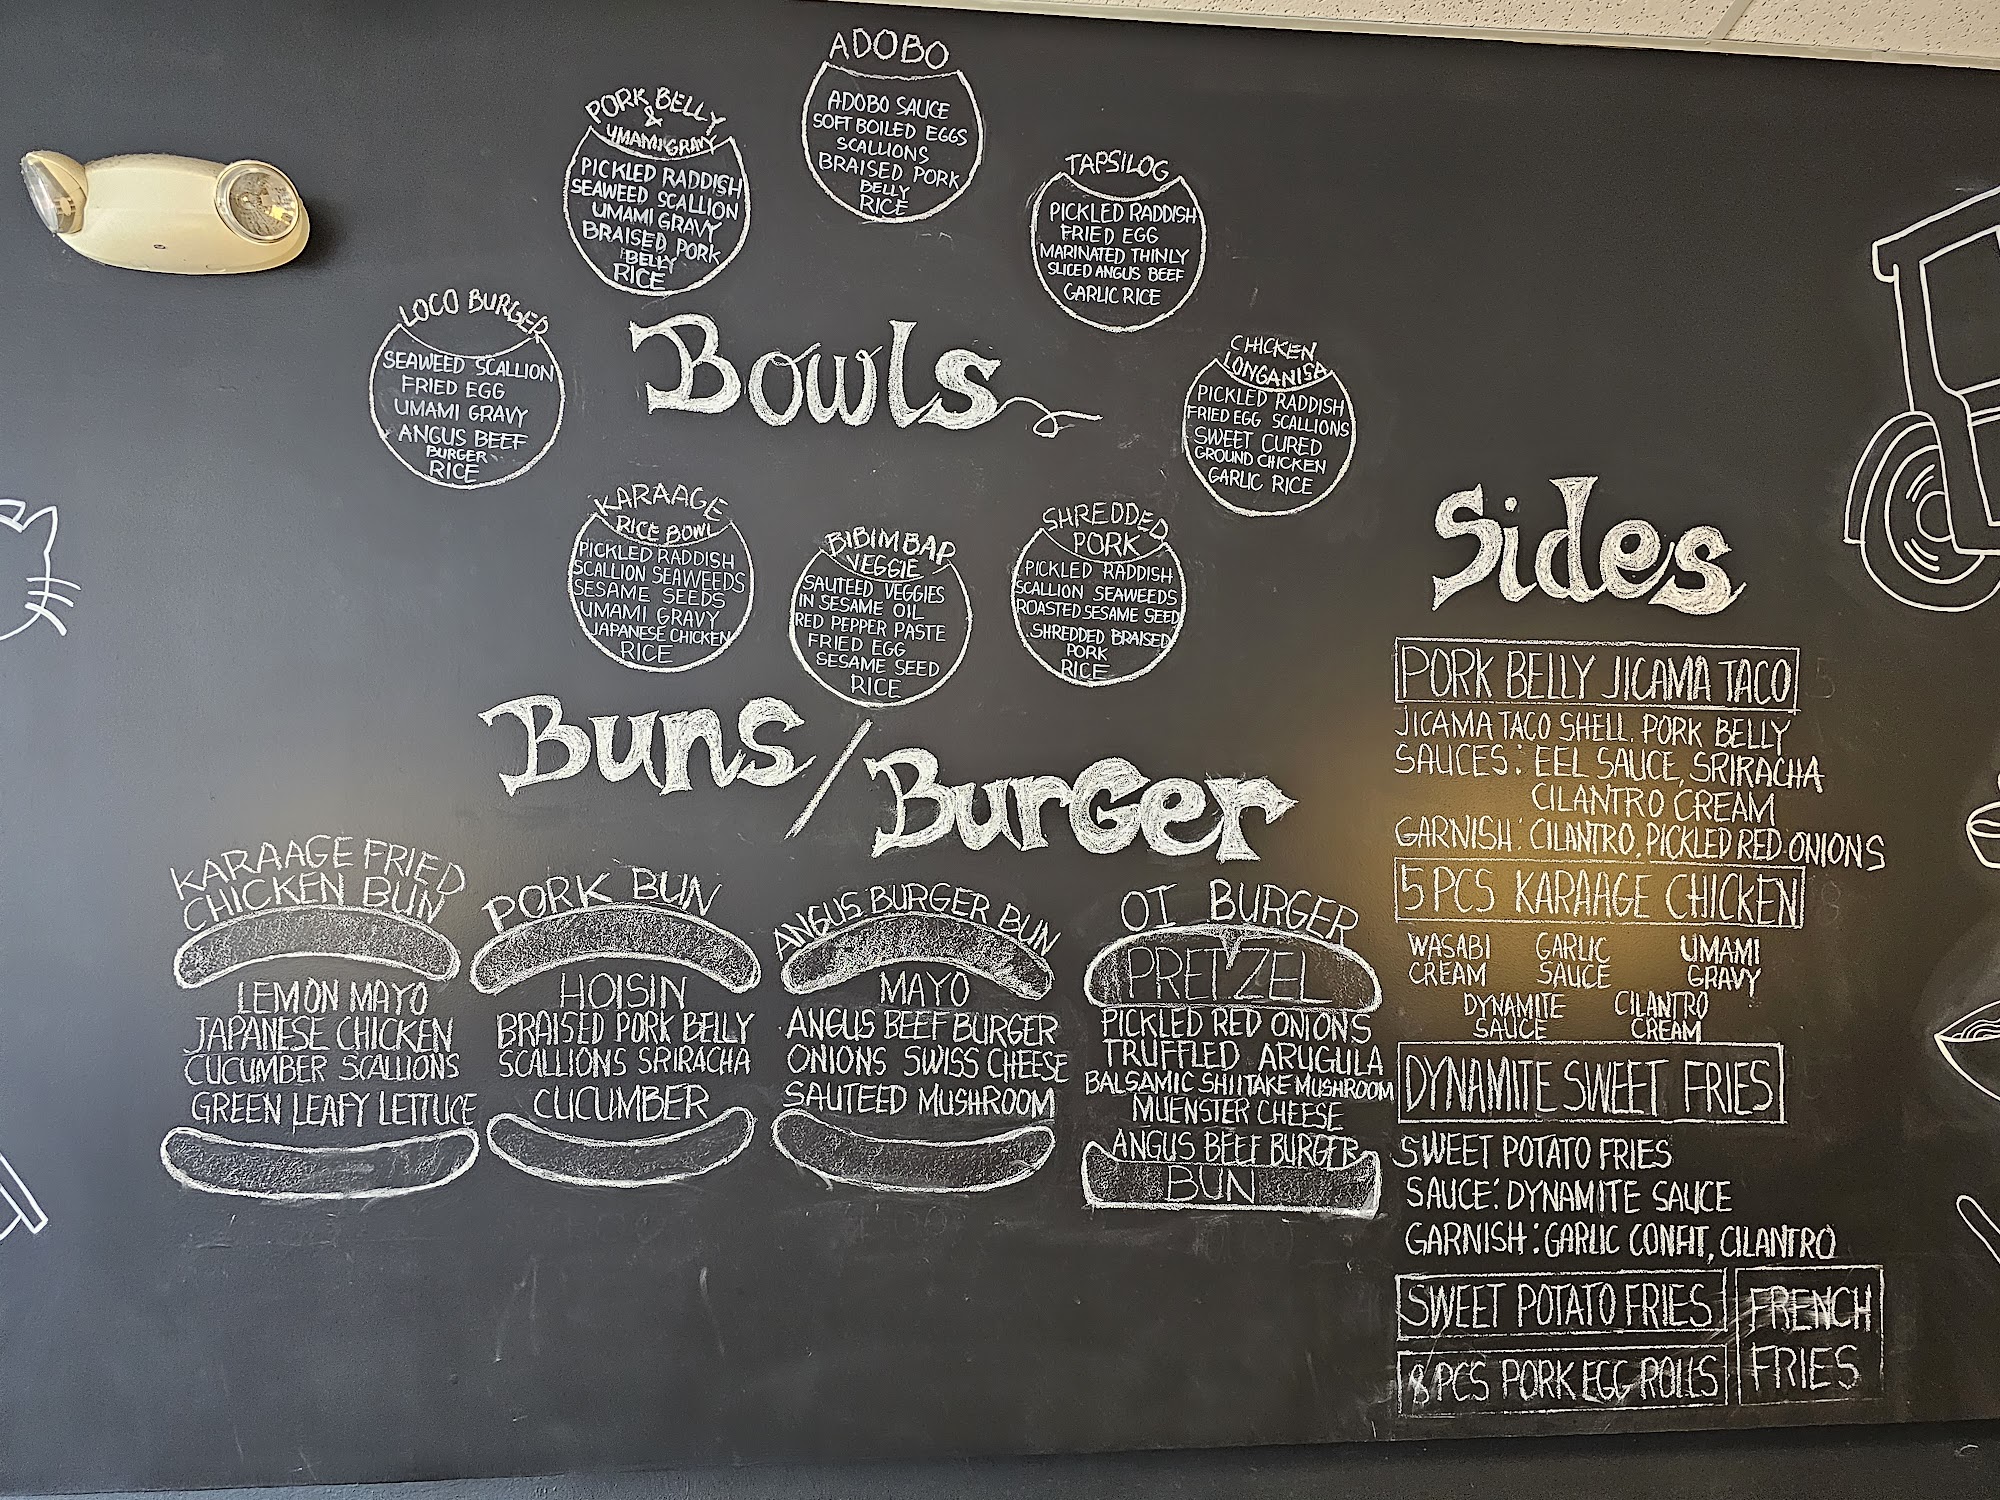 Bowls
ADOBO
ADOBO SAUCE
SOFT BOILED EGGS
SCALLIONS
BRAISED PORK
BELLY
RICE
PORK BELLY
&
UMAMI GRAVY
PICKLED RADDISH
SEAWEED SCALLION
UMAMI GRAVY
BRAISED PORK
BELLY
RICE
TAPSILOG
PICKLED RADDISH
FRIED EGG
MARINATED THINLY
SLICED ANGUS BEEF
GARLIC RICE
LOCO BURGER
SEAWEED SCALLION
FRIED EGG
UMAMI GRAVY
ANGUS BEEF
BURGER
RICE
CHICKEN
LONGANISA
PICKLED RADDISH
FRIED EGG SCALLIONS
SWEET CURED
GROUND CHICKEN
GARLIC RICE
KARAAGE
RICE BOWL
PICKLED RADDISH
SCALLION SEAWEEDS
SESAME SEEDS
UMAMI GRAVY
JAPANESE CHICKEN
RICE
BIBIMBAP
VEGGIE
SAUTEED VEGGIES
IN SESAME OIL
RED PEPPER PASTE
FRIED EGG
SESAME SEED
RICE
SHREDDED
PORK
PICKLED RADDISH
SCALLION SEAWEEDS
ROASTED SESAME SEED
SHREDDED BRAISED
PORK
RICE
Buns/Burger
KARAAGE FRIED
CHICKEN BUN
LEMON MAYO
JAPANESE CHICKEN
CUCUMBER SCALLIONS
GREEN LEAFY LETTUCE
PORK BUN
HOISIN
BRAISED PORK BELLY
SCALLIONS SRIRACHA
CUCUMBER
ANGUS BURGER BUN
MAYO
ANGUS BEEF BURGER
ONIONS SWISS CHEESE
SAUTEED MUSHROOM
OT BURGER
PRETZEL
PICKLED RED ONIONS
TRUFFLED ARUGULA
BALSAMIC SHIITAKE MUSHROOM
MUENSTER CHEESE
ANGUS BEEF BURGER
BUN
Sides
PORK BELLY JICAMA TACO
JICAMA TACO SHELL. PORK BELLY
SAUCES: EEL SAUCE, SRIRACHA
CILANTRO CREAM
GARNISH: CILANTRO, PICKLED RED ONIONS
5 PCS KARAAGE CHICKEN
WASABI GARLIC UMAMI
CREAM SAUCE GRAVY
DYNAMITE CILANTRO
SAUCE CREAM
DYNAMITE SWEET FRIES
SWEET POTATO FRIES
SAUCE: DYNAMITE SAUCE
GARNISH: GARLIC CONFIT, CILANTRO
SWEET POTATO FRIES
FRENCH
FRIES
8 PCS PORK EGG ROLLS